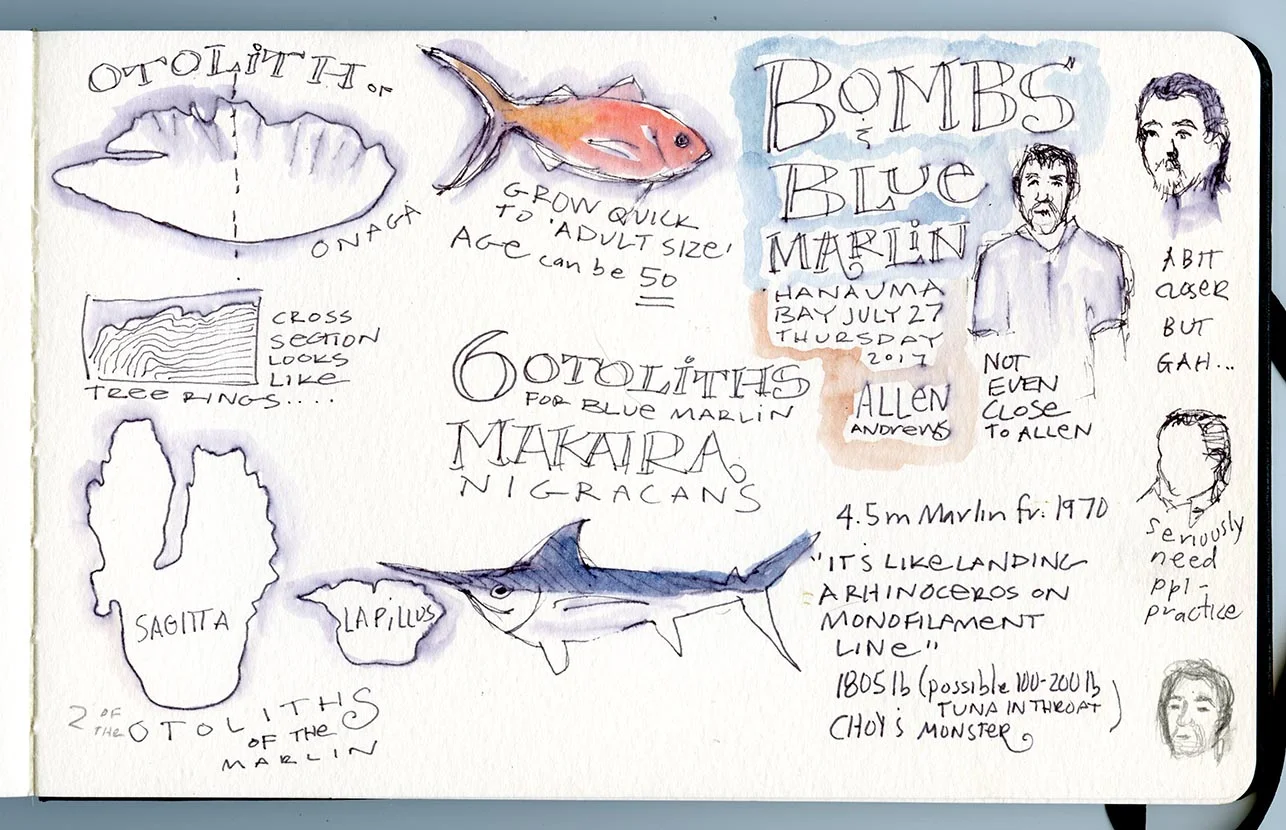 OTOLITH OF
ONAGA
GROW QUICK
TO 'ADULT SIZE'
AGE can be 50
CROSS
SECTION
LOOKS
LIKE
TREE RINGS....
6 OTOLITHS
FOR BLUE MARLIN
MAKAIRA
NIGRACANS
SAGITTA
LAPILLUS
2 OF THE OTOLITHS
OF THE
MARLIN
BOMBS"
&
BLUE
MARLIN
HANAUMA
BAY JULY 27
THURSDAY
2017
ALLEN
ANDREWS
NOT
EVEN
CLOSE
TO ALLEN
A BIT
CLOSER
BUT
GAH...
Seriously
need
ppl-
practice
4.5m Marlin fr. 1970
"IT'S LIKE LANDING
A RHINOCEROS ON
MONOFILAMENT
LINE"
1805 lb (possible 100-200 lb
TUNA IN THROAT)
CHOY'S MONSTER